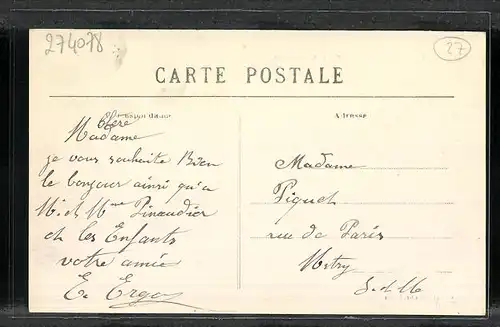 274018
27
CARTE POSTALE
Adresse
Chère
Madame
je vous souhaite Bien
le bonjour ainsi qu'a
M. et Mme Pinaudier
et les Enfants
votre amie
E. Ergo
Madame
Piquet
rue de Paris
Mitry
S. et M